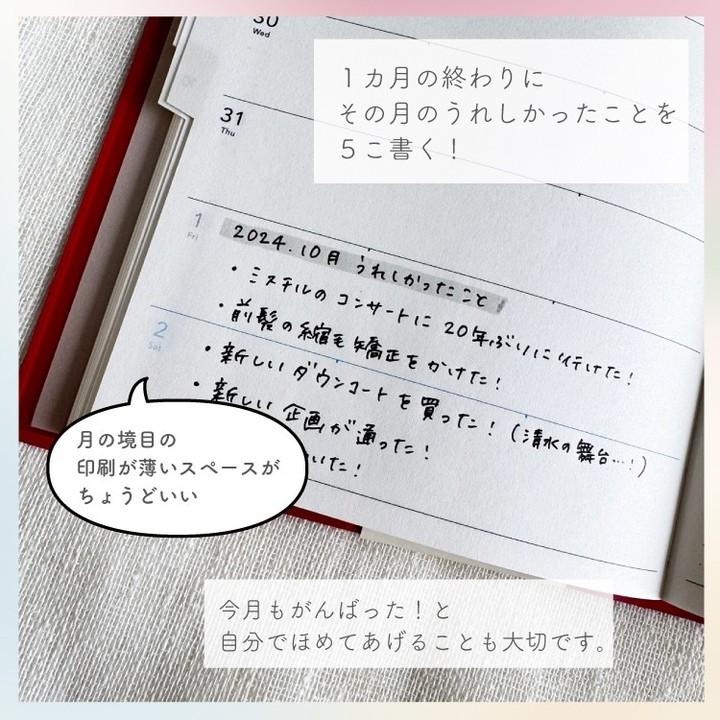 30
Wed
１カ月の終わりに
その月のうれしかったことを
５こ書く！
31
Thu
1
Fri
2024.10月 うれしかったこと
・ミスチルのコンサートに20年ぶりに行けた！
・前髪の縮毛矯正をかけた！
2
Sat
・新しいダウンコートを買った！（清水の舞台…！）
・新しい企画が通った！
いた！
月の境目の
印刷が薄いスペースが
ちょうどいい
今月もがんばった！と
自分でほめてあげることも大切です。